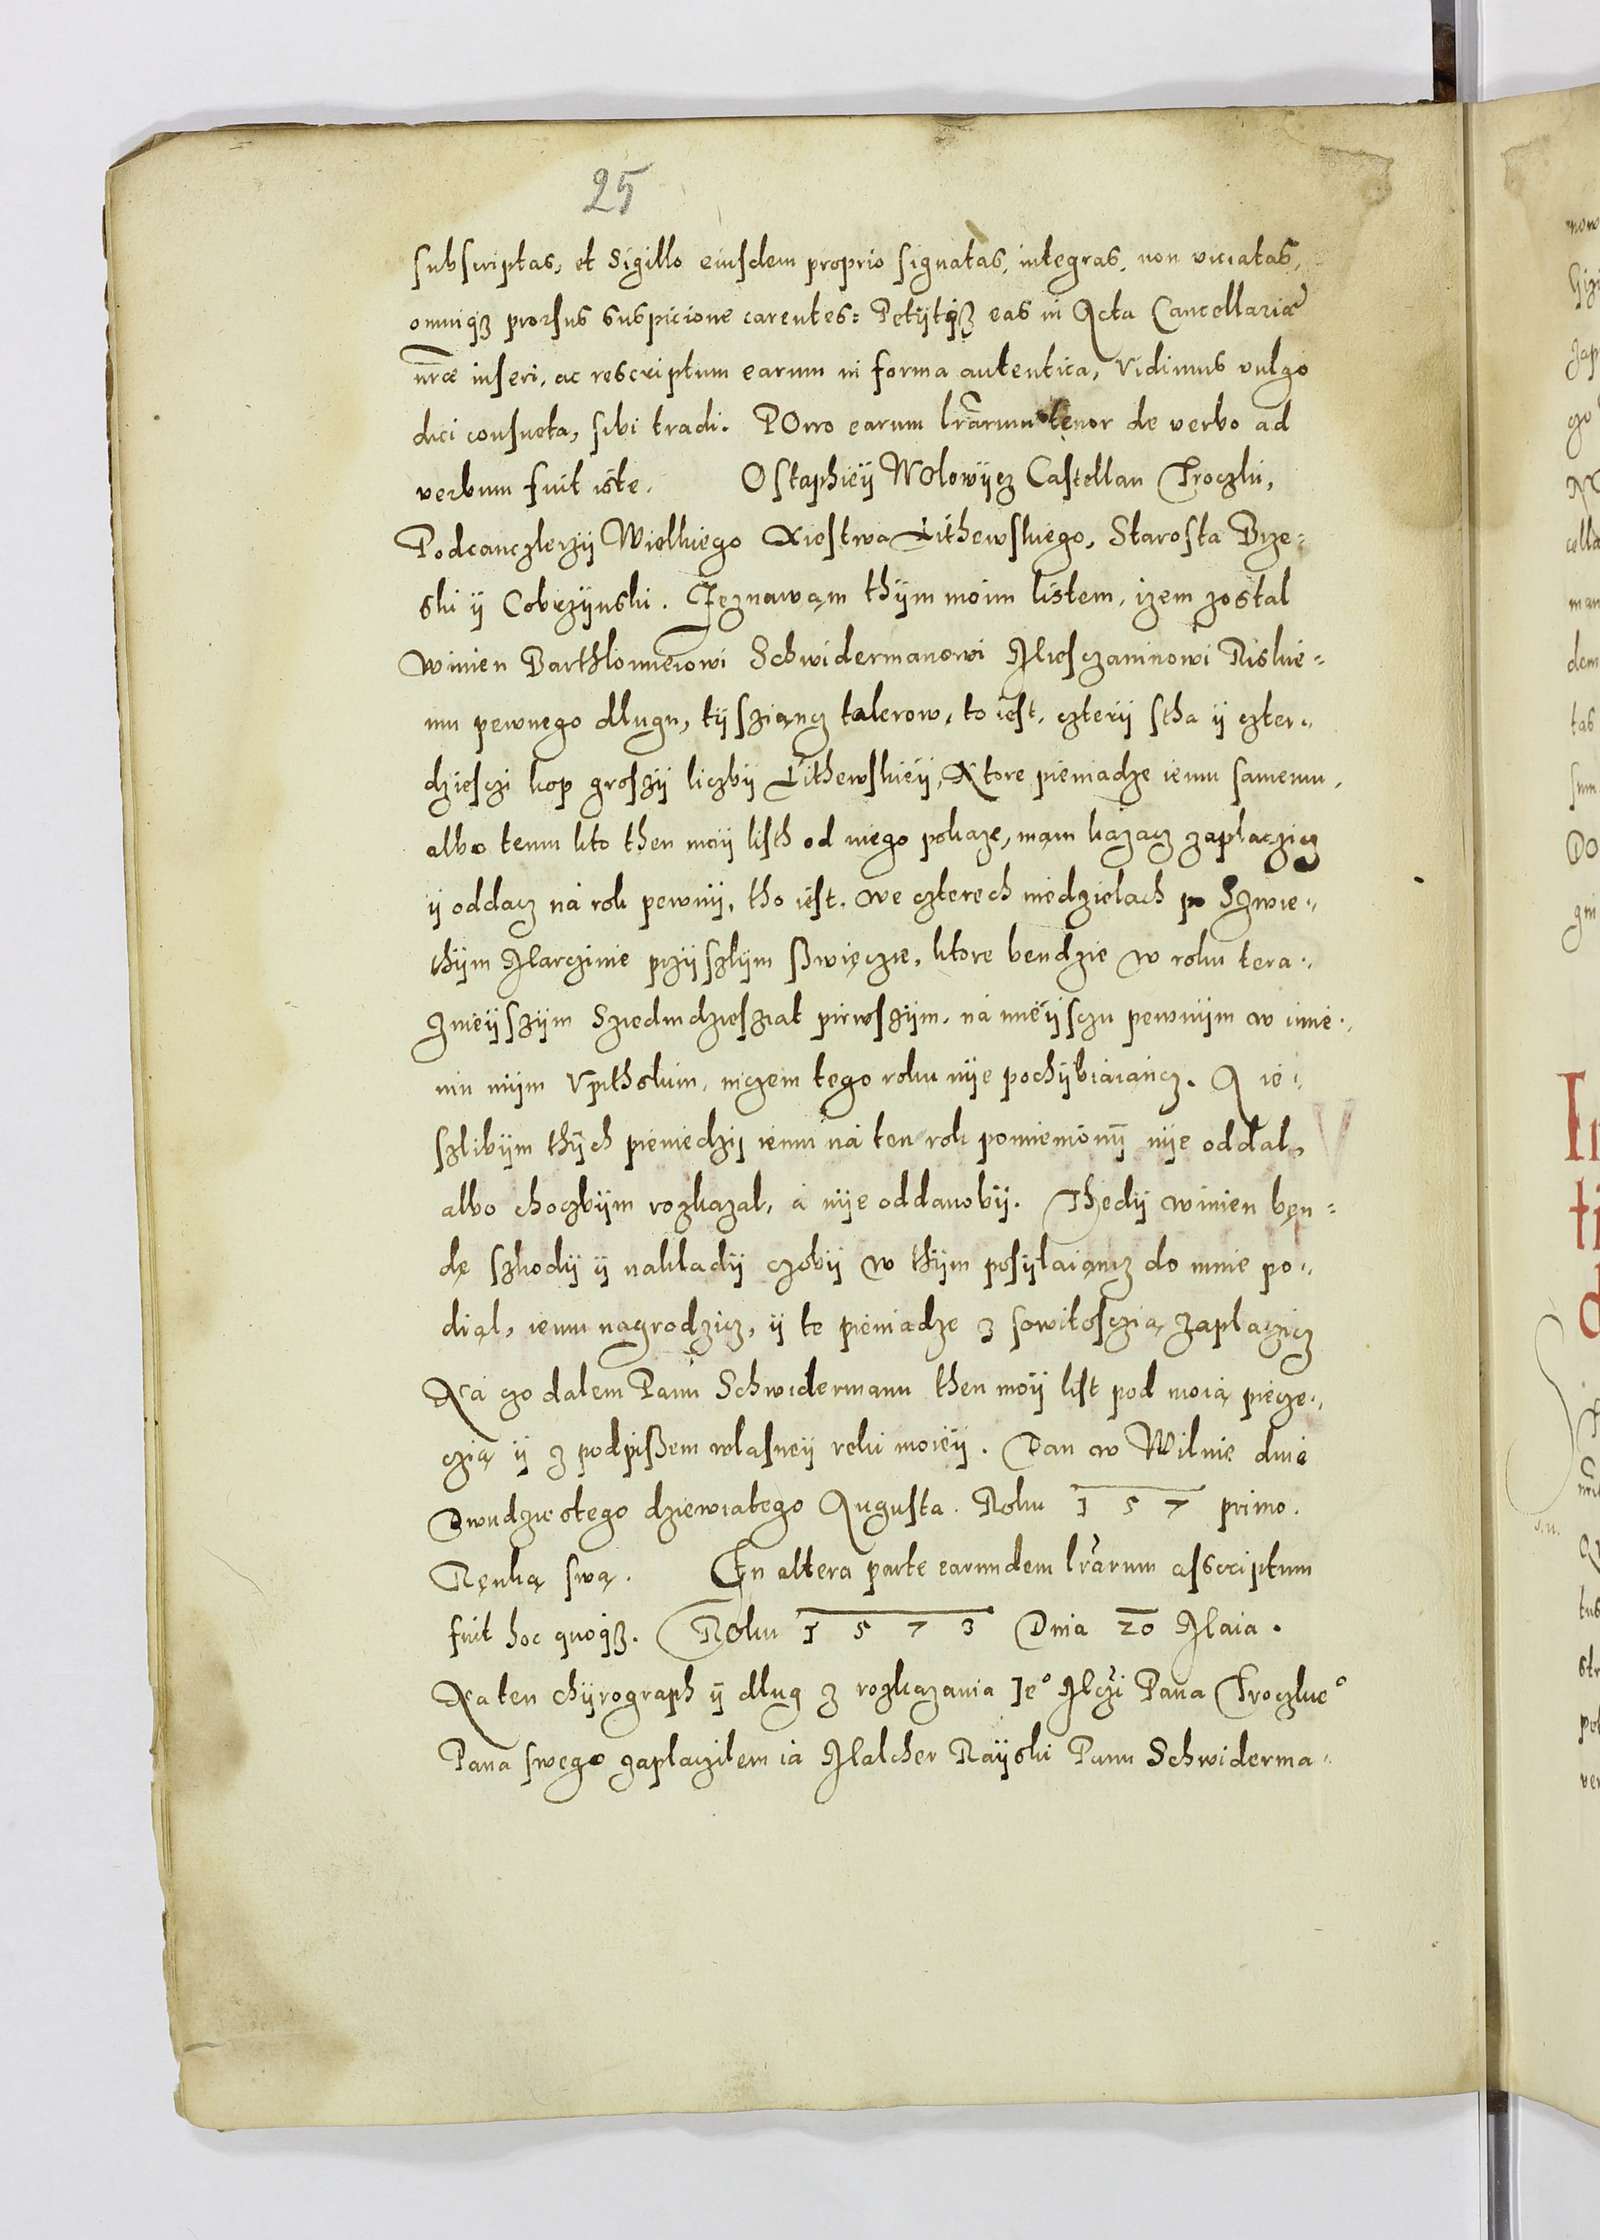 25
subscriptas, et Sigillo eiusdem proprio signatas, integras, non viciatas,
omniqꝫ prorsus suspicione carentes: Petijtqꝫ eas in Acta Cancellariæ
nr̃æ inseri, ac rescriptum earum in forma autentica, Vidimus vulgo
dici consueta, sibi tradi. POrro earum lr̃arum tenor de verbo ad
verbum fuit iste. Ostaphieÿ WOlowÿcz Castellan Troczki,
Podcanczlerzÿ Wielkiego Xiestwa Lithewskiego, Starosta Brze=
ski ÿ Cobrzÿnski. Jeznawąm thÿm moim listem, izem zostal
winien Barthlomieiowi Schwidermanowi Miesczaninowi Riskie=
mu pewnego dlugu, tÿsziącz talerow, to iest, czterÿ stha ÿ czter=
dziesczi kop groszÿ liczbÿ Lithewskieÿ, Ktore pieniadze iemu samemu,
albo temu kto then moÿ listh od niego pokaze, mąm kazacz zaplaczicz
ÿ oddacz ná rok pewnÿ, tho iest. we czterech niedzielach po Szwie=
thÿm Marczinie przÿszlÿm ßwięczie, ktore bendzie w roku tera=
znieÿszÿm Sziedmdziesziat pierwszÿm, ná mieÿsczu pewnÿm w imie=
niu mÿm Vpithskim, niczem tego roku nÿe pochÿbiaiąncz. A ie=
szlibÿm thÿch pieniedzÿ iemu ná ten rok pomienionÿ nÿe oddal,
albo choczbÿm rozkazal, á nÿe oddanobÿ. Thedÿ winien bęn=
dę szkodÿ ÿ nakladÿ czobÿ w thÿm posÿlaiąncz do mnie po=
diął, iemu nagrodzicz, ÿ te pieniadze z sowitosczią zaplaczicz
Ná czo dalem Panu Schwidermanu then moÿ list pod moią piecze=
czią ÿ z podpißem wlasneÿ reki moieÿ. Dan w Wilnie dnie
Dwudziestego dziewiatego Augusta. Roku 157 primo.
Ręnką swą. In altera parte earundem lr̃arum asscriptum
fuit hoc quoqꝫ. Roku 1573 Dnia 20 Maia.
Na ten chÿrograph ÿ dlug z rozkazania Jeº Mczi Pana Troczkieº
Pana swego zaplaczilem ia Malcher Raÿski Panu Schwiderma=